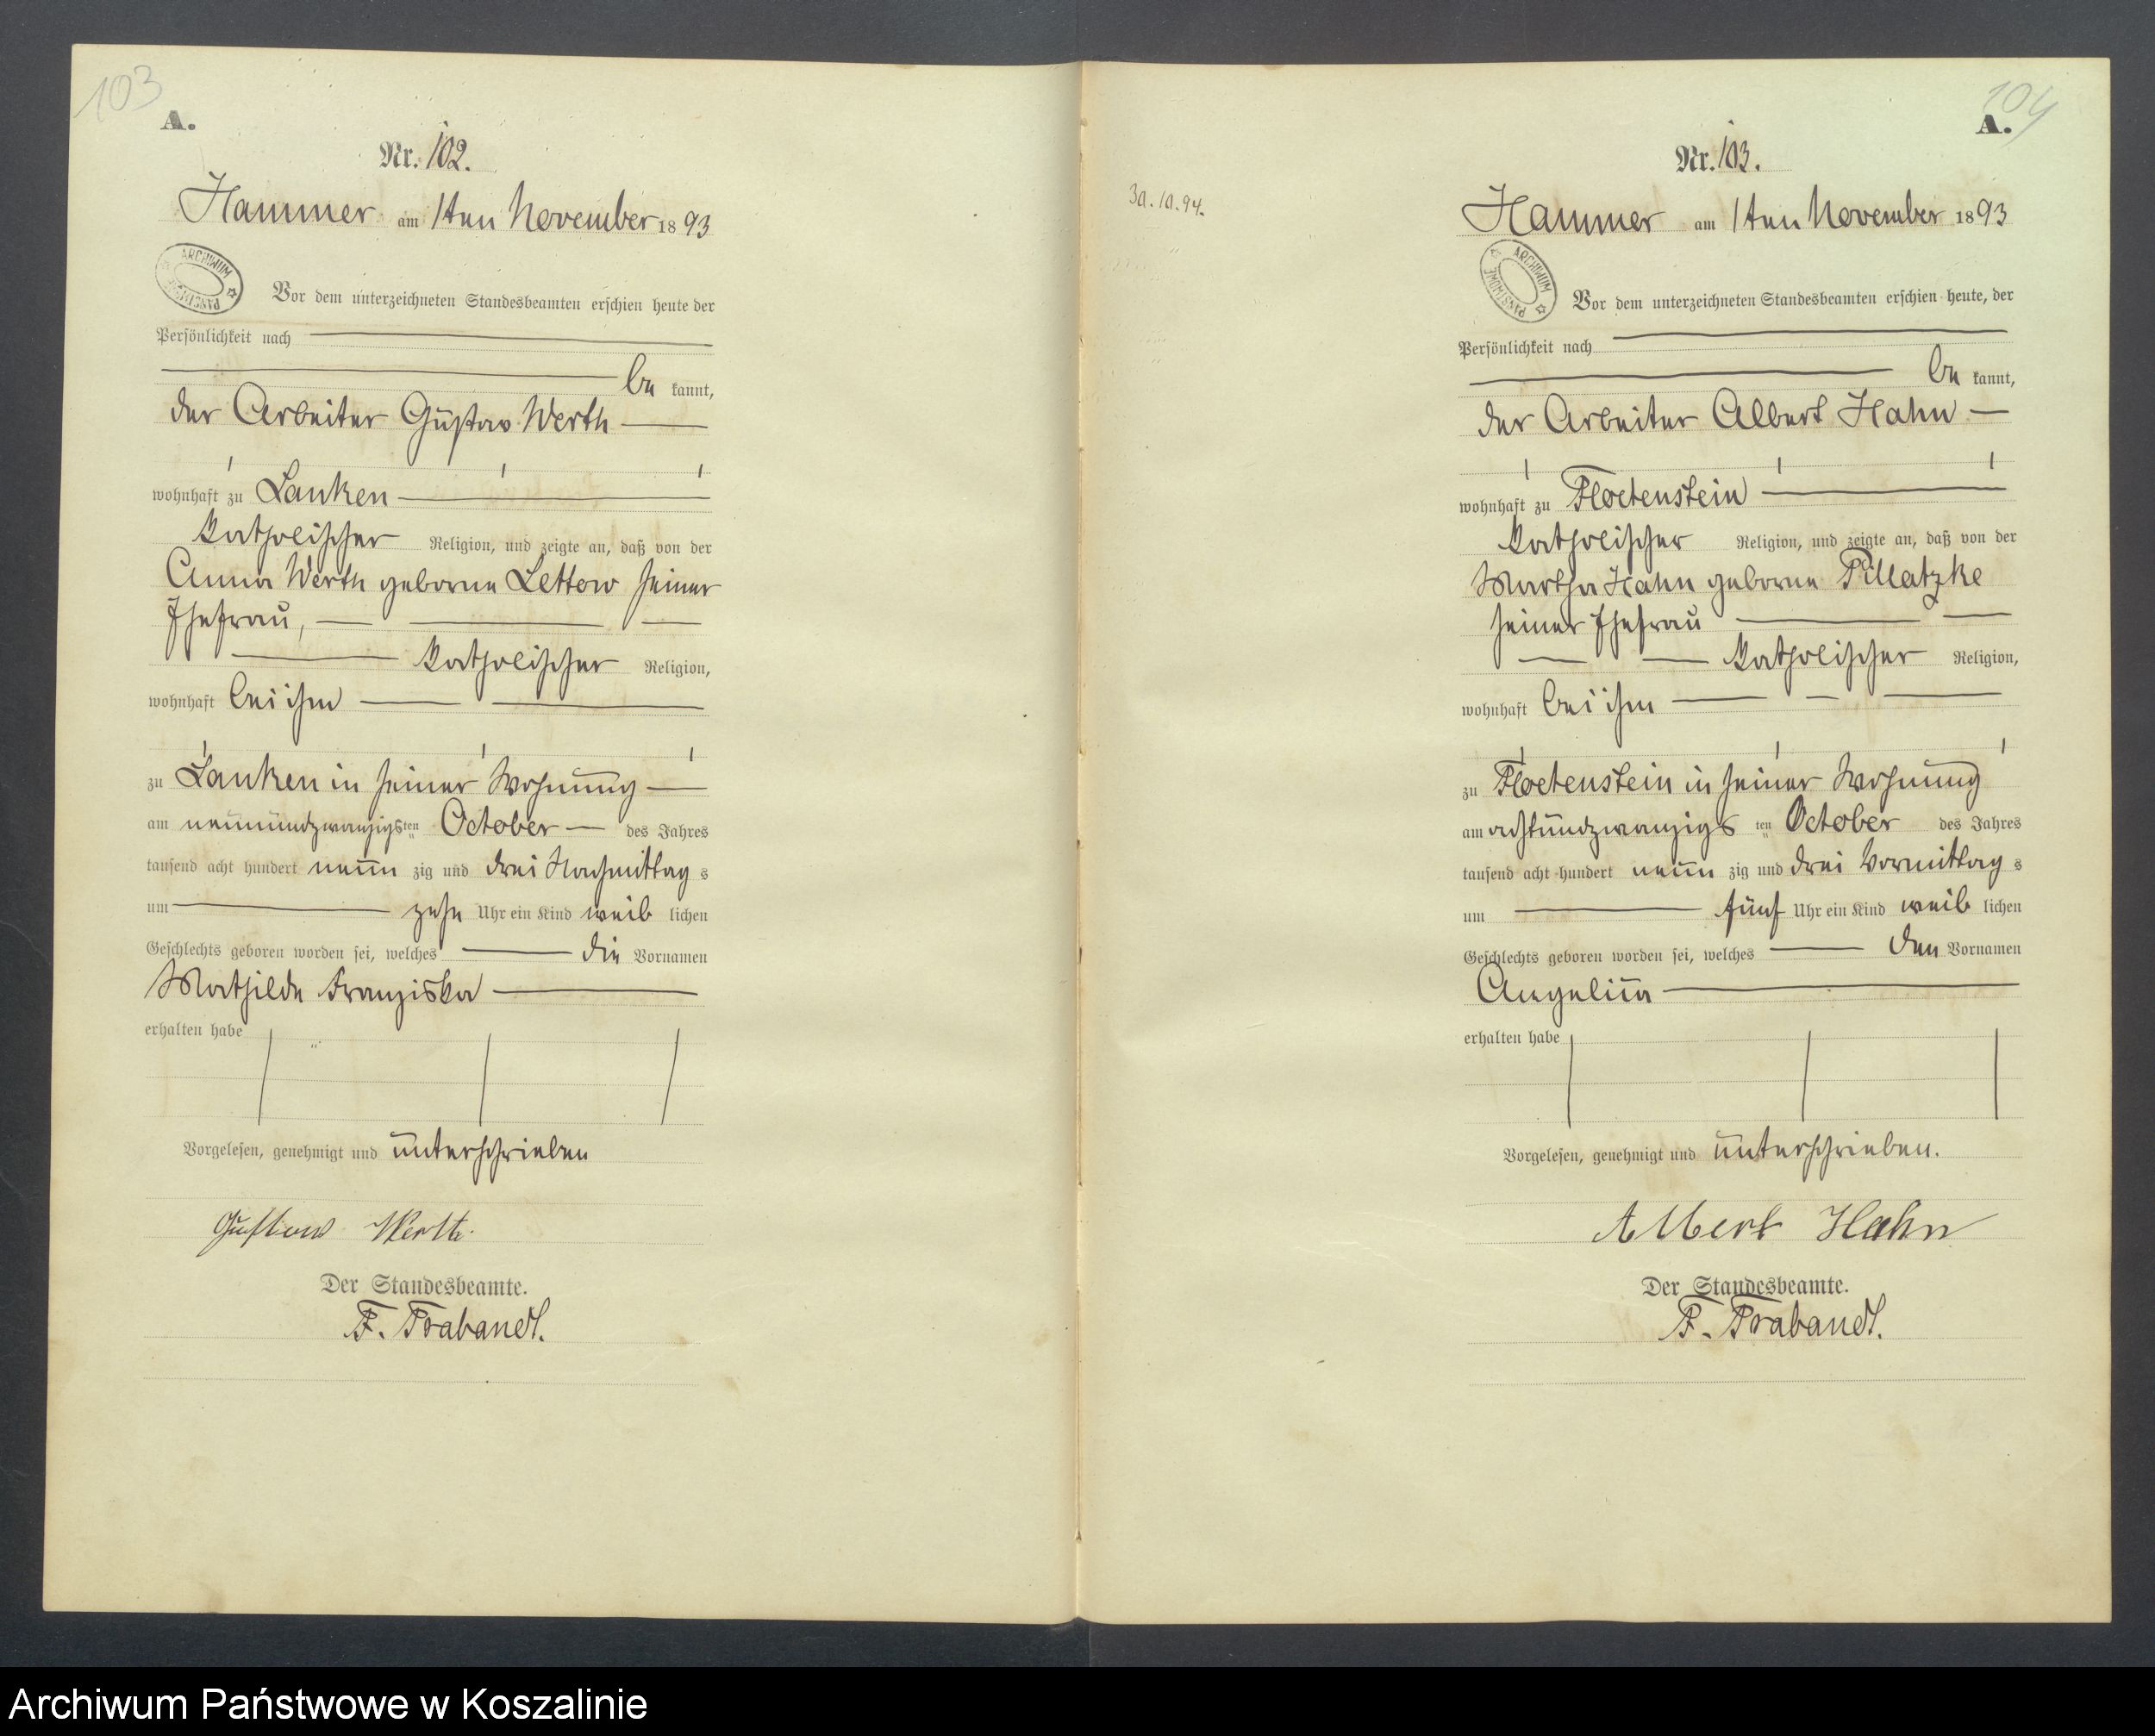 103
A.
Nr. 102.
Hammer am 1ten November 1893
ARCHIWUM PAŃSTWOWE
Vor dem unterzeichneten Standesbeamten erschien heute der
Persönlichkeit nach
be kannt,
der Arbeiter Gustav Werth
wohnhaft zu Lanken
katholischer Religion, und zeigte an, daß von der
Anna Werth geborne Lettow seiner
Ehefrau,
katholischer Religion,
wohnhaft bei ihm
zu Lanken in seiner Wohnung
am neunundzwanzigsten October des Jahres
tausend acht hundert neun zig und drei Nachmittag s
um zehn Uhr ein Kind weib lichen
Geschlechts geboren worden sei, welches die Vornamen
Mathilde Franziska
erhalten habe
Vorgelesen, genehmigt und unterschrieben
Gustaw Werth.
Der Standesbeamte.
F. Trabandt.
104
A.
Nr. 103.
3a. 10. 94.
Hammer am 1ten November 1893
ARCHIWUM PAŃSTWOWE
Vor dem unterzeichneten Standesbeamten erschien heute, der
Persönlichkeit nach
be kannt,
der Arbeiter Albert Hahn
wohnhaft zu Floetenstein
katholischer Religion, und zeigte an, daß von der
Martha Hahn geborne Pillatzke
seiner Ehefrau
katholischer Religion,
wohnhaft bei ihm
zu Floetenstein in seiner Wohnung
am achtundzwanzigs ten October des Jahres
tausend acht hundert neun zig und drei Vormittag s
um fünf Uhr ein Kind weib lichen
Geschlechts geboren worden sei, welches den Vornamen
Angelina
erhalten habe
Vorgelesen, genehmigt und unterschrieben.
Albert Hahn
Der Standesbeamte.
F. Trabandt.
Archiwum Państwowe w Koszalinie